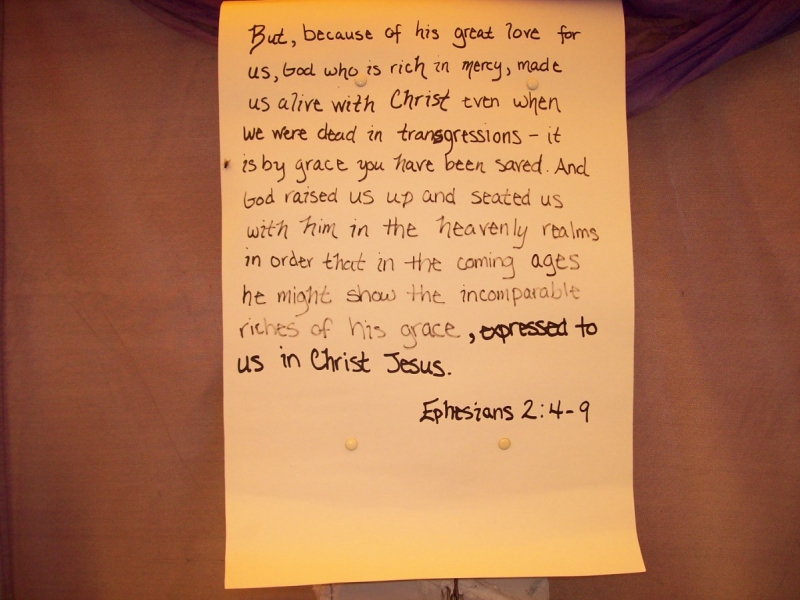 But, because of his great love for
us, God who is rich in mercy, made
us alive with Christ even when
we were dead in transgressions - it
is by grace you have been saved. And
God raised us up and seated us
with him in the heavenly realms
in order that in the coming ages
he might show the incomparable
riches of his grace, expressed to
us in Christ Jesus.
Ephesians 2:4-9